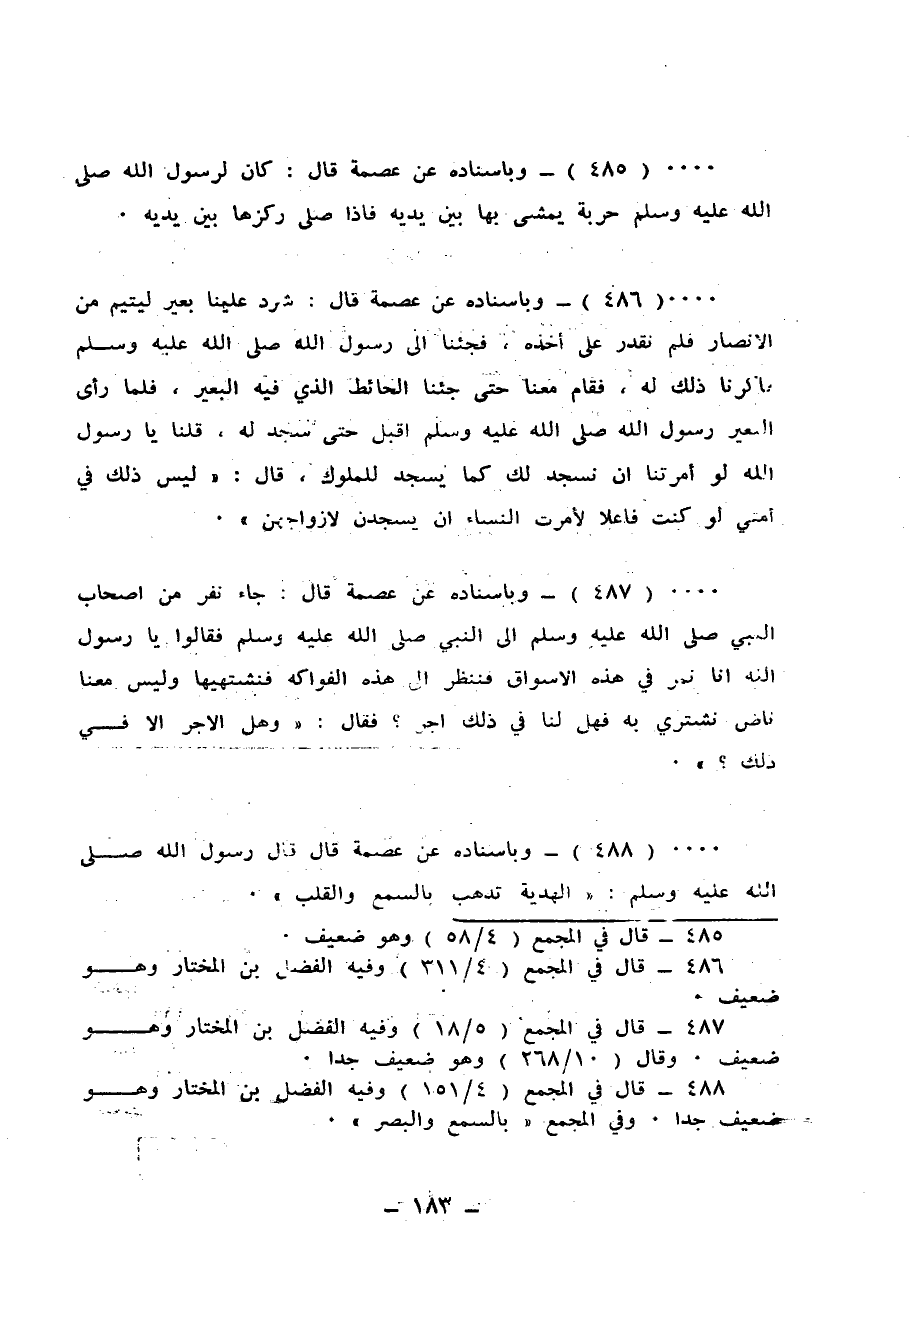 ٠٠٠٠ ( ٤٨٥ ) ــ وباسناده عن عصمة قال : كان لرسول الله صلى
الله عليه وسلم حربة يمشى بها بين يديه فاذا صلى ركزها بين يديه ٠
٠٠٠٠( ٤٨٦ ) ــ وباسناده عن عصمة قال : شرد علينا بعير ليتيم من
الانصار فلم نقدر على أخذه ، فجئنا الى رسول الله صلى الله عليه وســلم
ذلك له ، فقام معنا حتى جئنا الحائط الذي فيه البعير ، فلما رأى
البعير رسول الله صلى الله عليه وسلم اقبل حتى سجد له ، قلنا يا رسول
الله لو أمرتنا ان نسجد لك كما يسجد للملوك ، قال : « ليس ذلك في
أمتي لو كنت فاعلا لأمرت النساء ان يسجدن لازواجهن » ٠
٠٠٠٠ ( ٤٨٧ ) ــ وباسناده عن عصمة قال : جاء نفر من اصحاب
النبي صلى الله عليه وسلم الى النبي صلى الله عليه وسلم فقالوا يا رسول
الله انا نمر في هذه الاسواق فننظر الى هذه الفواكه فنشتهيها وليس معنا
ناض نشتري به فهل لنا في ذلك اجر ؟ فقال : « وهل الاجر الا فـــي
ذلك ؟ » ٠
٠٠٠٠ ( ٤٨٨ ) ــ وباسناده عن عصمة قال قال رسول الله صـــلى
الله عليه وسلم : « الهدية تذهب بالسمع والقلب » ٠
٤٨٥ ــ قال في المجمع ( ٥٨/٤ ) وهو ضعيف ٠
٤٨٦ ــ قال في المجمع ( ٣١١/٤ ) وفيه الفضل بن المختار وهـــو
ضعيف ٠
٤٨٧ ــ قال في المجمع ( ١٨/٥ ) وفيه الفضل بن المختار وهـــو
ضعيف ٠ وقال ( ٢٦٨/١٠ ) وهو ضعيف جدا ٠
٤٨٨ ــ قال في المجمع ( ١٥١/٤ ) وفيه الفضل بن المختار وهـــو
ضعيف جدا ٠ وفي المجمع « بالسمع والبصر » ٠
ــ ١٨٣ ــ